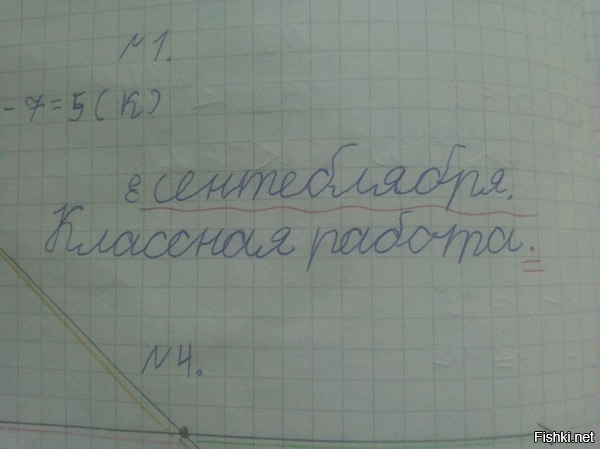 N1.
-7=5(К)
8 сентеблября.
Классная работа.
N4.
Fishki.net